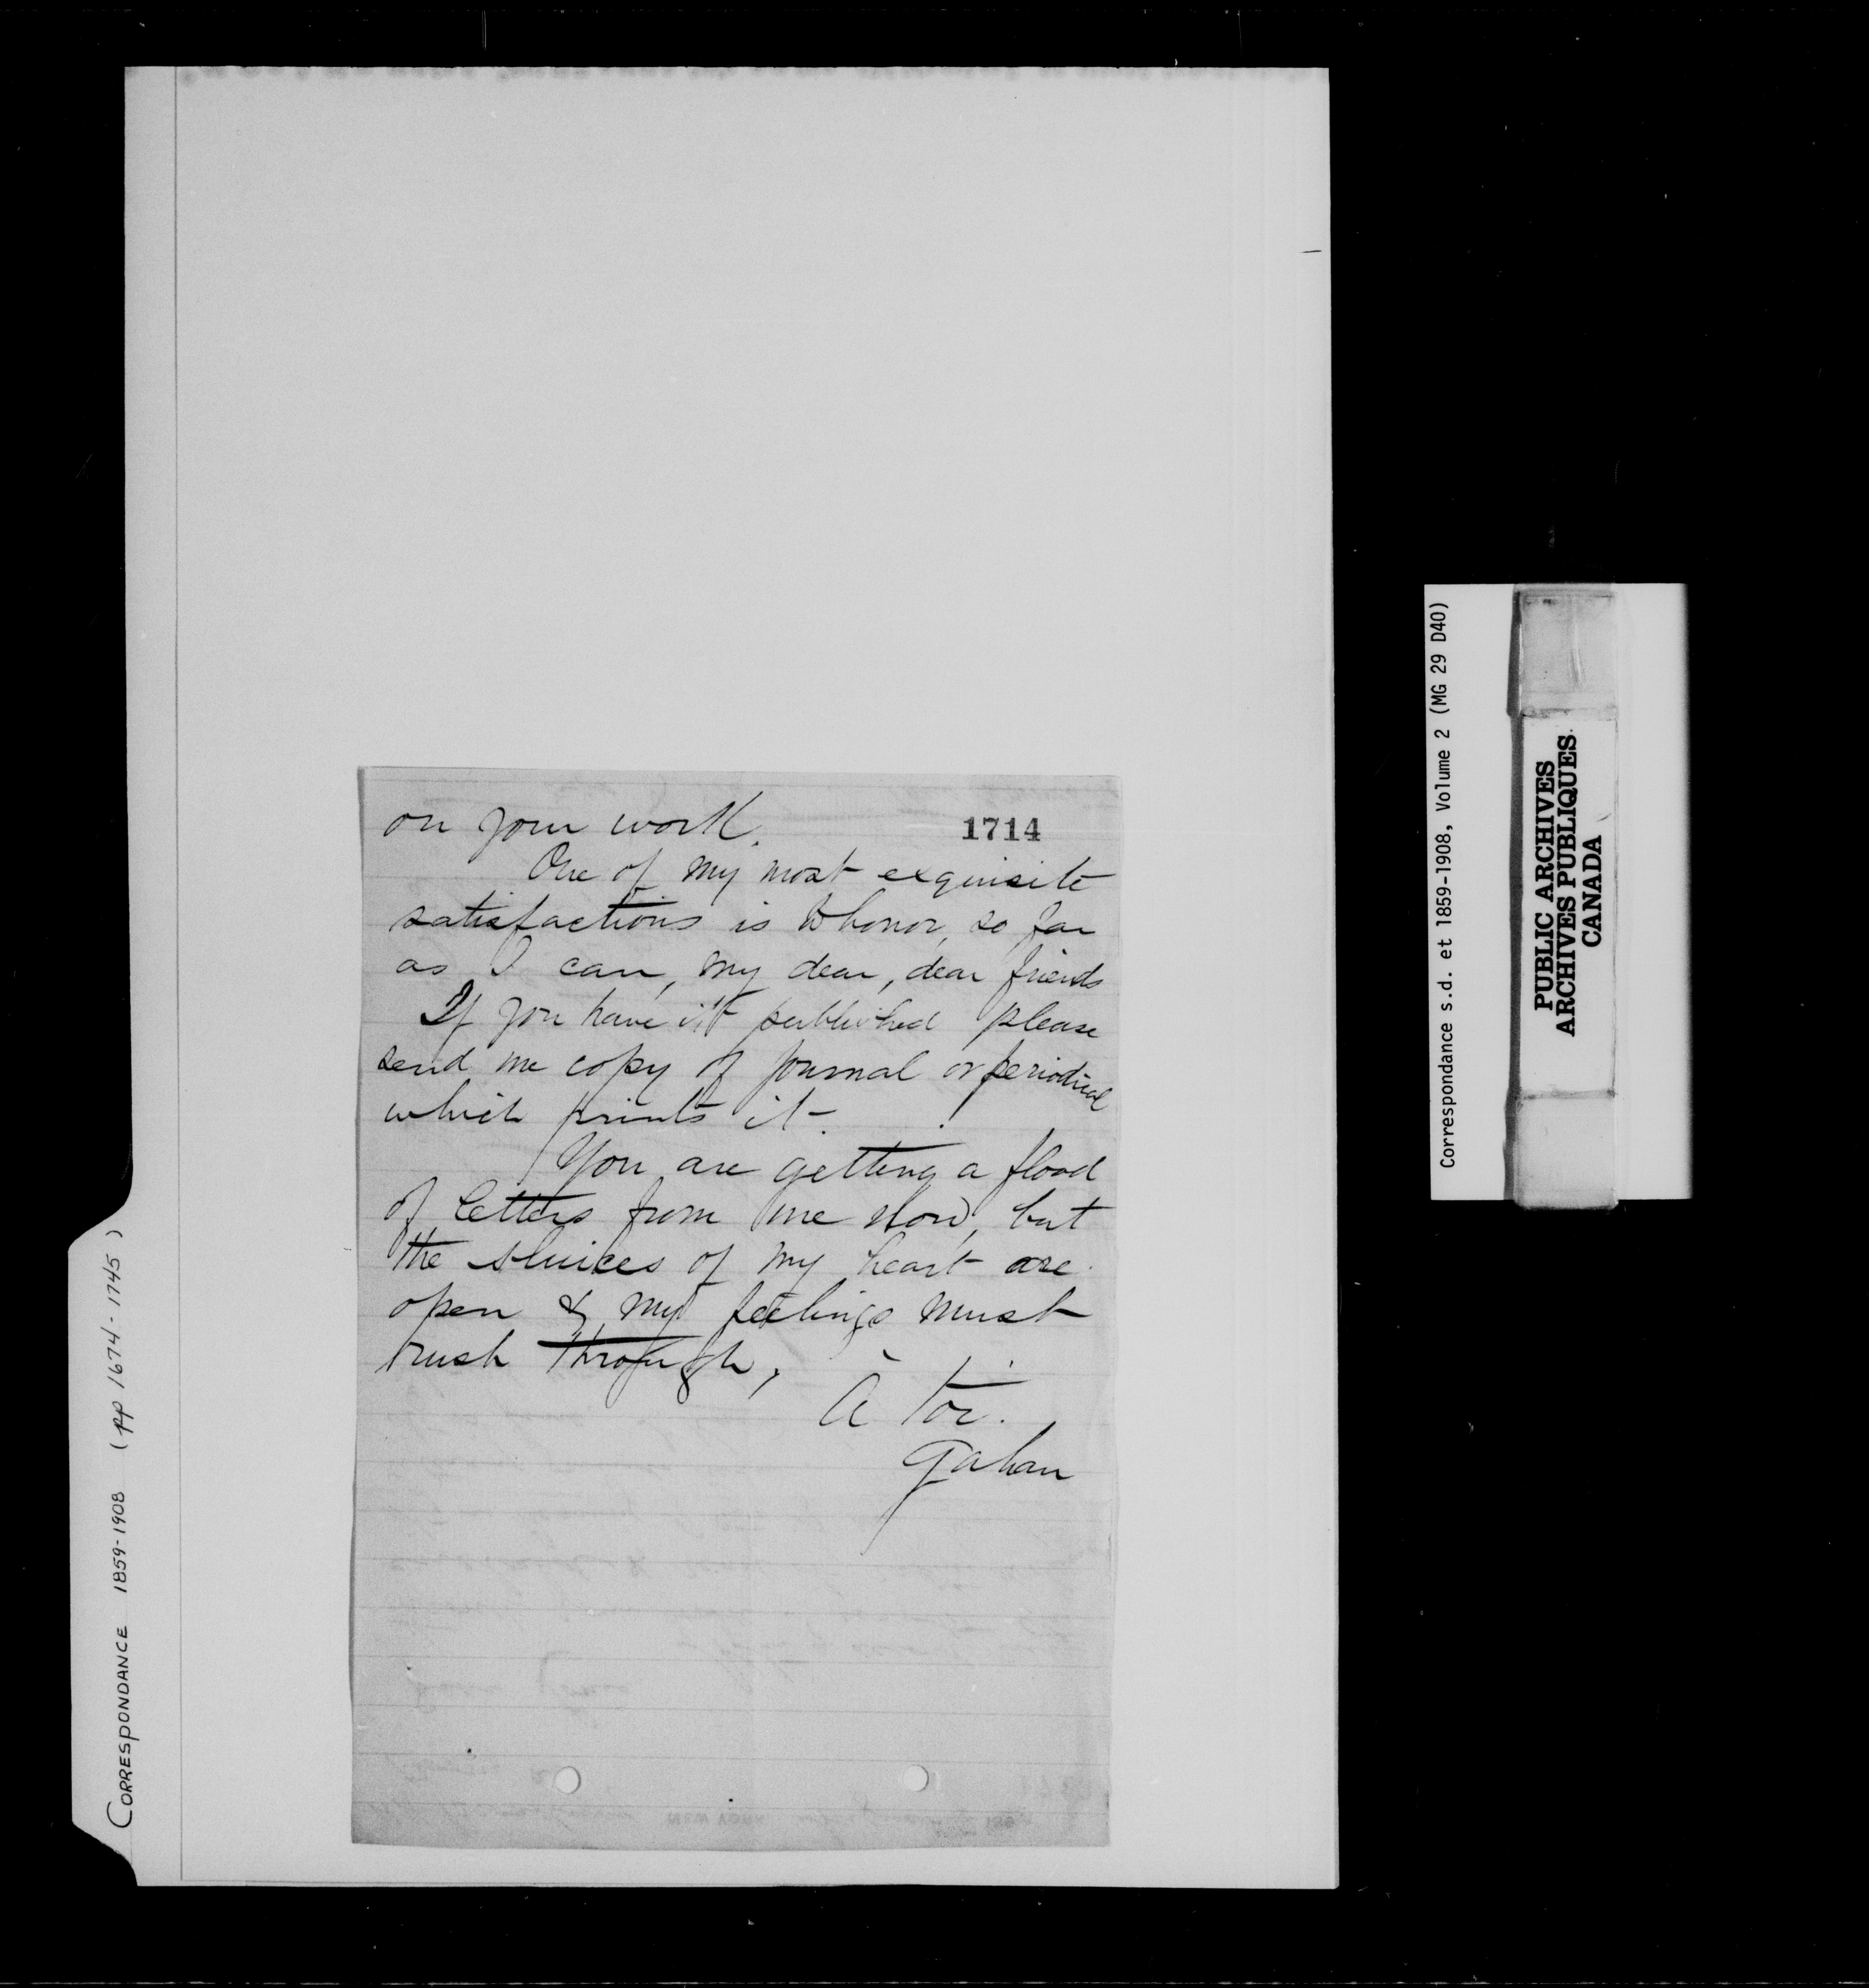 on your work.
1714
One of my most exquisite
satisfactions is to honor, so far
as I can, my dear, dear friends
If you have it published please
send me copy of journal or periodical
which prints it.
You are getting a flood
of letters from me now, but
the sluices of my heart are
open & my feelings must
rush through,
À toi.
Gahan
NEW YORK
CORRESPONDANCE 1859-1908 (pp 1674-1745)
Correspondance s.d. et 1859-1908, Volume 2 (MG 29 D40)
PUBLIC ARCHIVES
ARCHIVES PUBLIQUES
CANADA